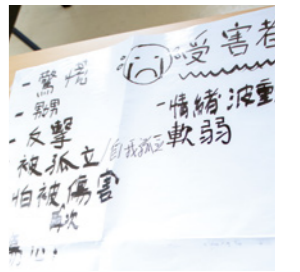 受害者
- 驚慌
- 反擊
被孤立/自我孤立
怕被傷害
再次
- 情緒波動
軟弱